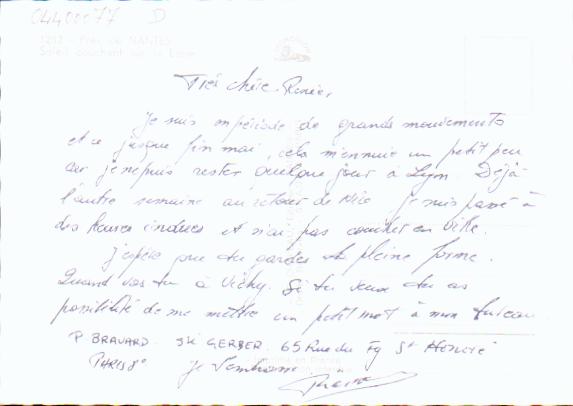 04400077 D
1212 - Près de NANTES
Soleil couchant sur la Loire
Très chère Renée,
Je suis en période de grands mouvements
et ce jusque fin mai, cela m'ennuie un petit peu
car je ne puis rester quelque jour à Lyon. Déjà
l'autre semaine au retour de Nice je suis passé à
des heures indues et n'ai pas coucher en ville.
J'espère que tu gardes la pleine forme.
Quand vas tu à Vichy. Si tu veux tu as
possibilité de me mettre un petit mot à mon bureau
P BRAVARD. GERBER. 65 Rue du Fg St Honoré
PARIS 8°
je t'embrasse